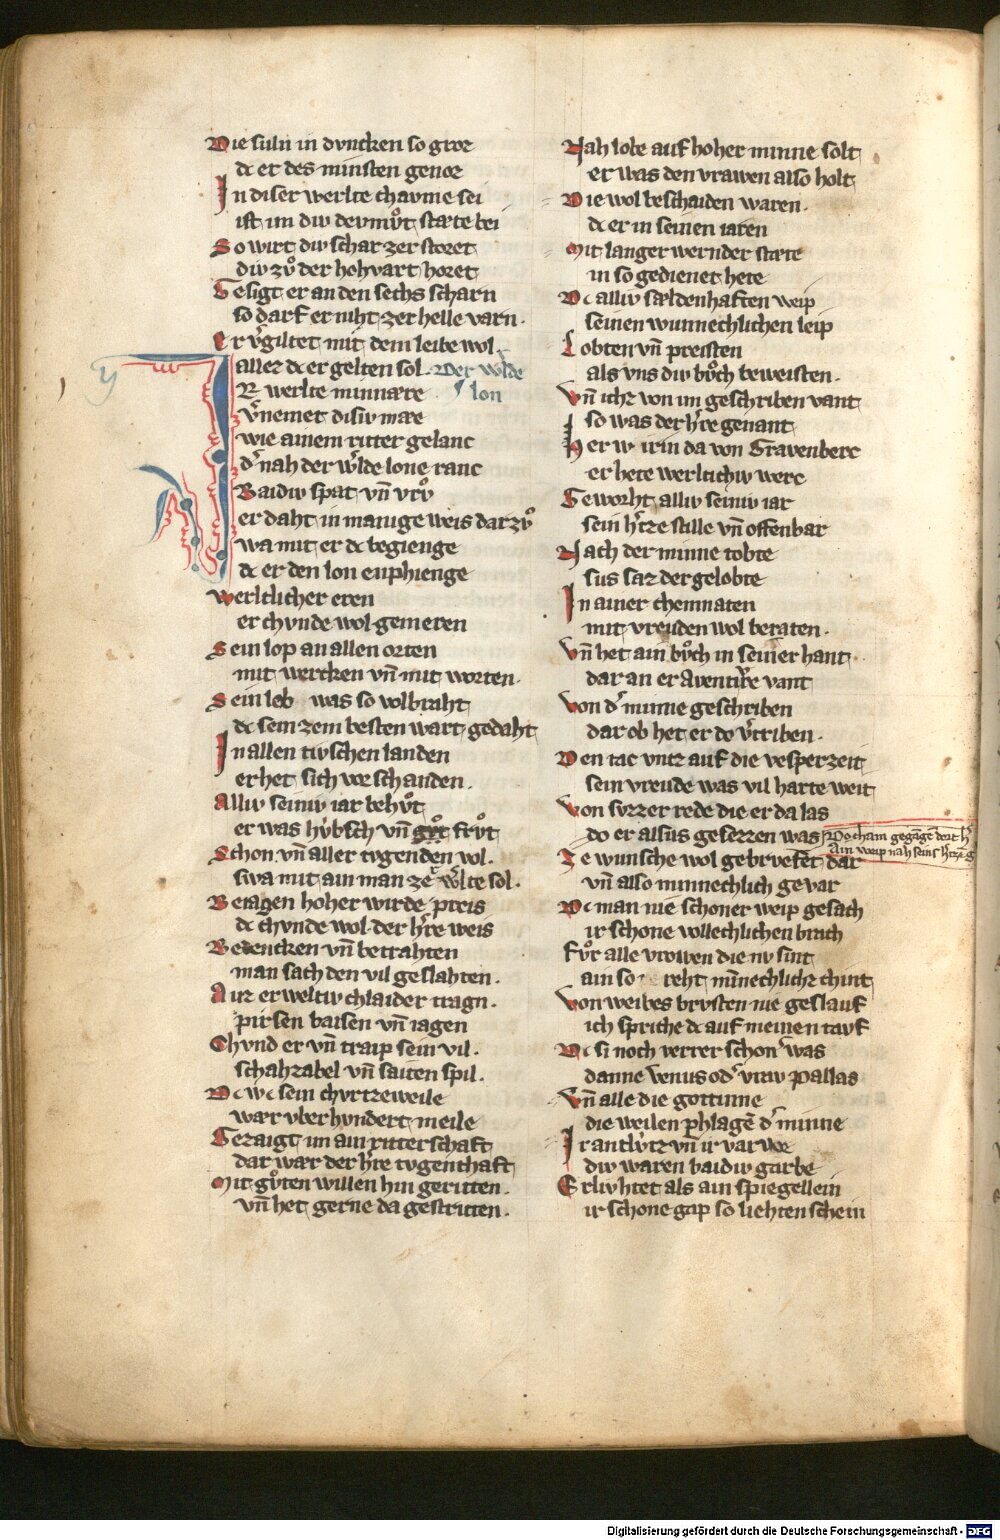 Die suln in dvncken so groz
dc er des minsten genoz
In diser werlte chavme sei
ist im div devmvͦt stæte bei
So wirt div schar zerstoret
div zvͦ der hohvart horet
Gesigt er an den sechs scharn
so darf er niht zer helle varn.
Er v̓giltet mit dem leibe wol
allez dc er gelten sol. Der w̓lde
IR werlte minnære lon
v̓nemet disiv mære
wie ainem ritter gelanc
d̓ nah der w̓lde lone ranc
Baidiv spat vn̄ vrvͦ
er daht in manige weis dar zvͦ
wa mit er dc begienge
dc er den lon enphienge
werltlicher eren
er chvnde wol gemeren
Sein lop an allen orten
mit wercken vn̄ mit worten.
Sein leb was so volbraht
dc sein zem besten wart gedaht
In allen tivschen landen
er het sich vor schanden.
Alliv seiniv iar behvͦt
er was hvbsch vn̄ frvͦt
Schon vn̄ aller tvgenden vol.
swa mit ain man ze w̓lte sol.
Beiagen hoher wirde preis
dc chvnde wol der h̓re weis
Bedencken vn̄ betrahten
man sach den vil geslahten.
Auz erweltiv chlaider tragn.
pirsen baisen vn̄ iagen
Chvnd er vn̄ traip sein vil.
schahzabel vn̄ saiten spil.
Dc wc sein chvrtzeweile
wær vber hvndert meile
Gezaigt im ain ritterschaft
dar wær der h̓re tvgenthaft
Mit gvͦten willen hin geritten.
vn̄ het gerne da gestritten.
Nah lobe auf hoher minne solt
er was den vrawen also holt
Die wol beschaiden waren.
dc er in seinen iaren
Mit langer wernder stæte
in so gedienet hete
Dc alliv sældenhaften weip
seinen wunnechlichen leip
Lobten vn̄ preisten
als vns div bvͦch beweisten.
Vn̄ ichz von im geschriben vant
so was der h̓re genant
Her wirin da von Gravenberc
er hete werltichiv werc
Geworht alliv seiniv iar
sein h̓tze stille vn̄ offenbar
Nach der minne tobte
sus saz der gelobte
In ainer chemnaten
mit vreuden wol beraten.
Vn̄ het ain bvͦch in seiner hant
dar an er Aventivre vant
Von d̓ minne geschriben
dar ob het er do v̓triben.
Den tac vntz auf die vesperzeit
sein vreude was vil harte weit
Von svzzer rede die er da las
do er alsus gesezzen was Do cham gegāge dort h̓
Ain weip nah seins h̓tzē g̓
Ze wunsche wol gebrvefet dar
vn̄ also minnechlich gevar
Dc man nie schoner weip gesach
ir schone vollechlichen brach
Fvͦr alle vrowen die nv sint
ain so reht mīnechlichz chint
Von weibes brvsten nie geslauf
ich spriche dc auf meinen tauf
Dc si noch verrer schon̓ was
danne Venus od̓ vraw Pallas
Vn̄ alle die gottinne
die weilen phlagē d̓ minne
Ir antlvtz vn̄ ir varwe
div waren baidiv garbe
Erlivhtet als ain spiegellein
ir schone gap so liehten schein
Digitalisierung gefördert durch die Deutsche Forschungsgemeinschaft - DFG